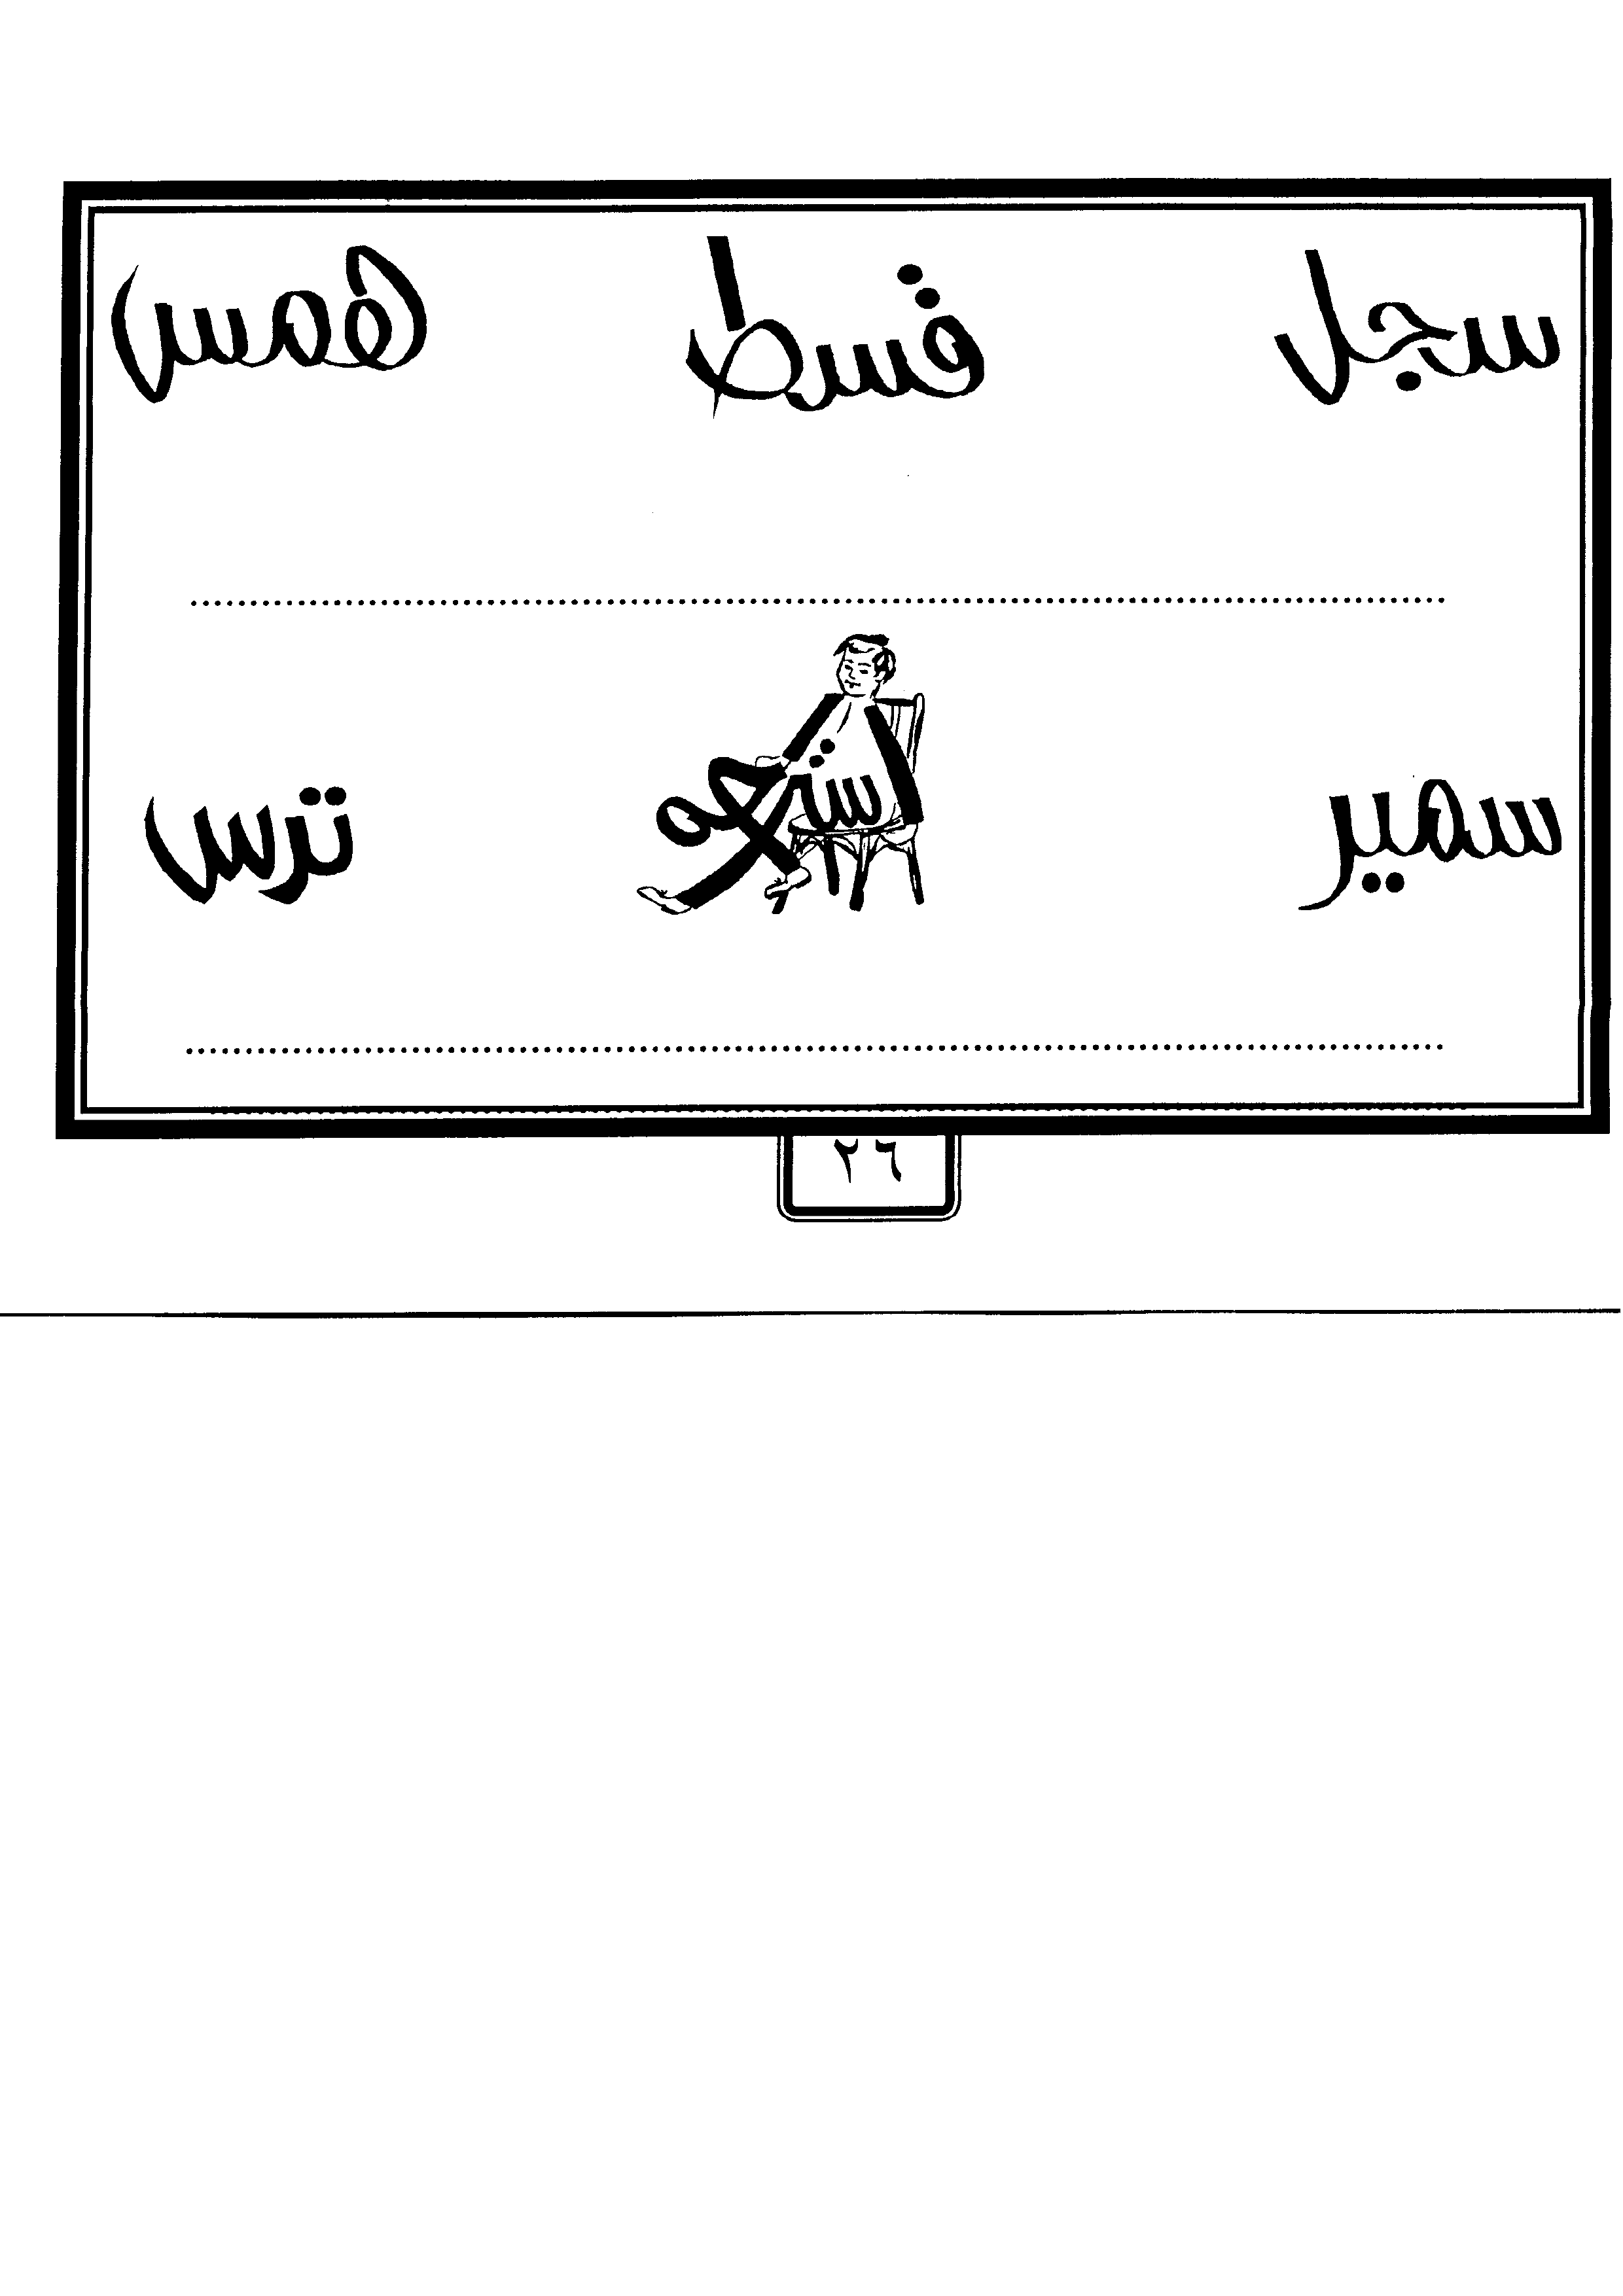 سجل قسط همس
سمير ترس
٢٦